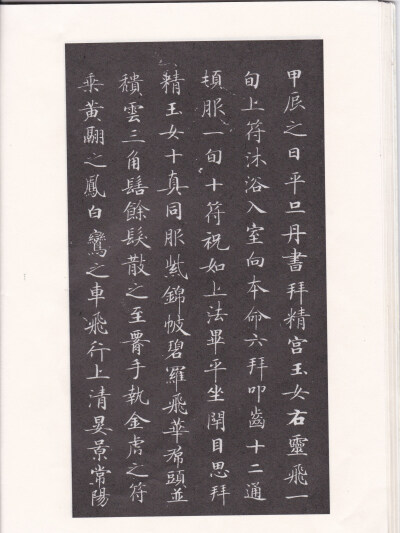 甲辰之日平旦丹書拜精宫玉女右靈飛一
旬上符沐浴入室向本命六拜叩齒十二通
頓服一旬十符祝如上法畢平坐閉目思拜
精玉女十真同服紫錦帔碧羅飛華帬頭並
穨雲三角髻餘髮散之至署手執金虎之符
乗黄翮之鳳白鸞之車飛行上清晏景常陽